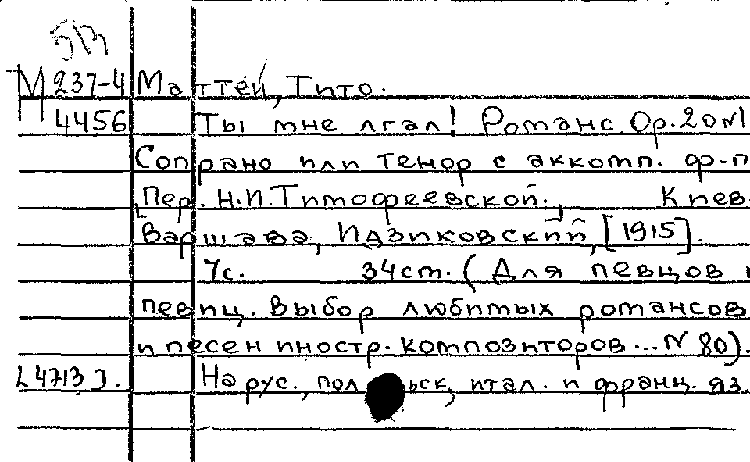 М 237-4 Маттей, Тито.
4456 Ты мне лгал! Романс. Ор. 20 №1
Сопрано или тенор с аккомп. ф-п
[Пер. Н.И. Тимофеевской.] Киев
Варшава, Идзиковский, [1915].
7с. 34 см. (Для певцов и
певиц. Выбор любимых романсов
и песен иностр. композиторов... № 80).
[4713]. На рус., польск, итал. и франц. яз.